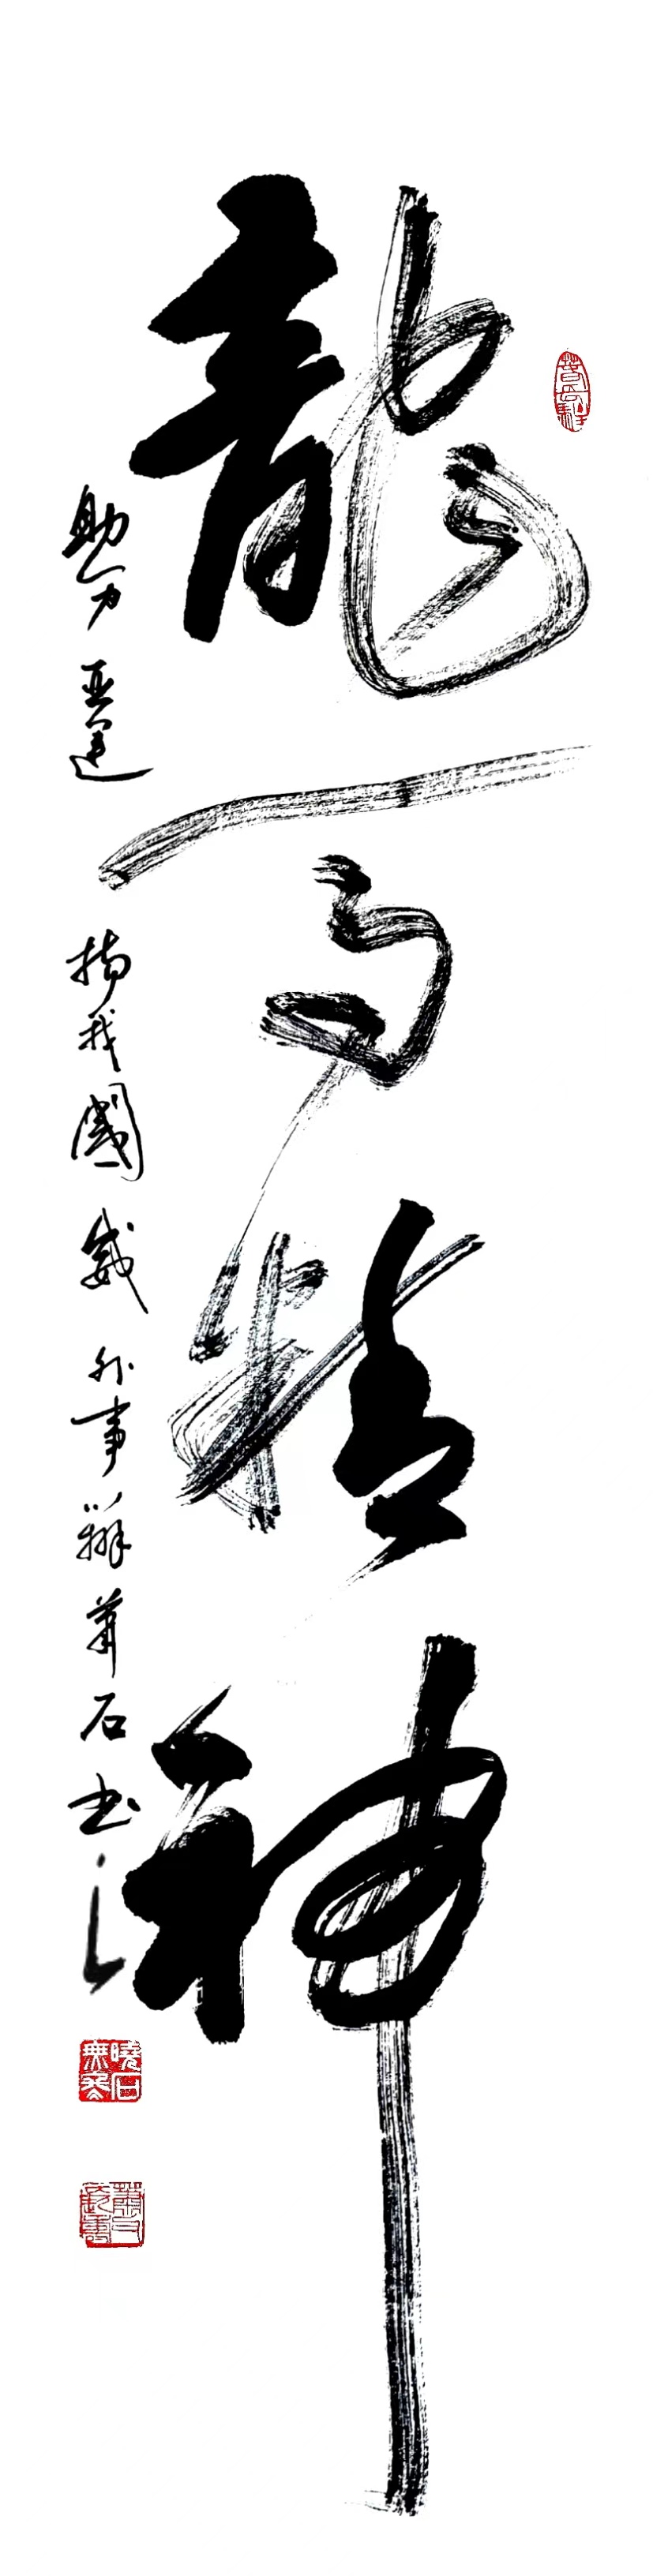 龍馬精神
助力亞運 揚我國威 外事辦 蕭石书
曉石無恙